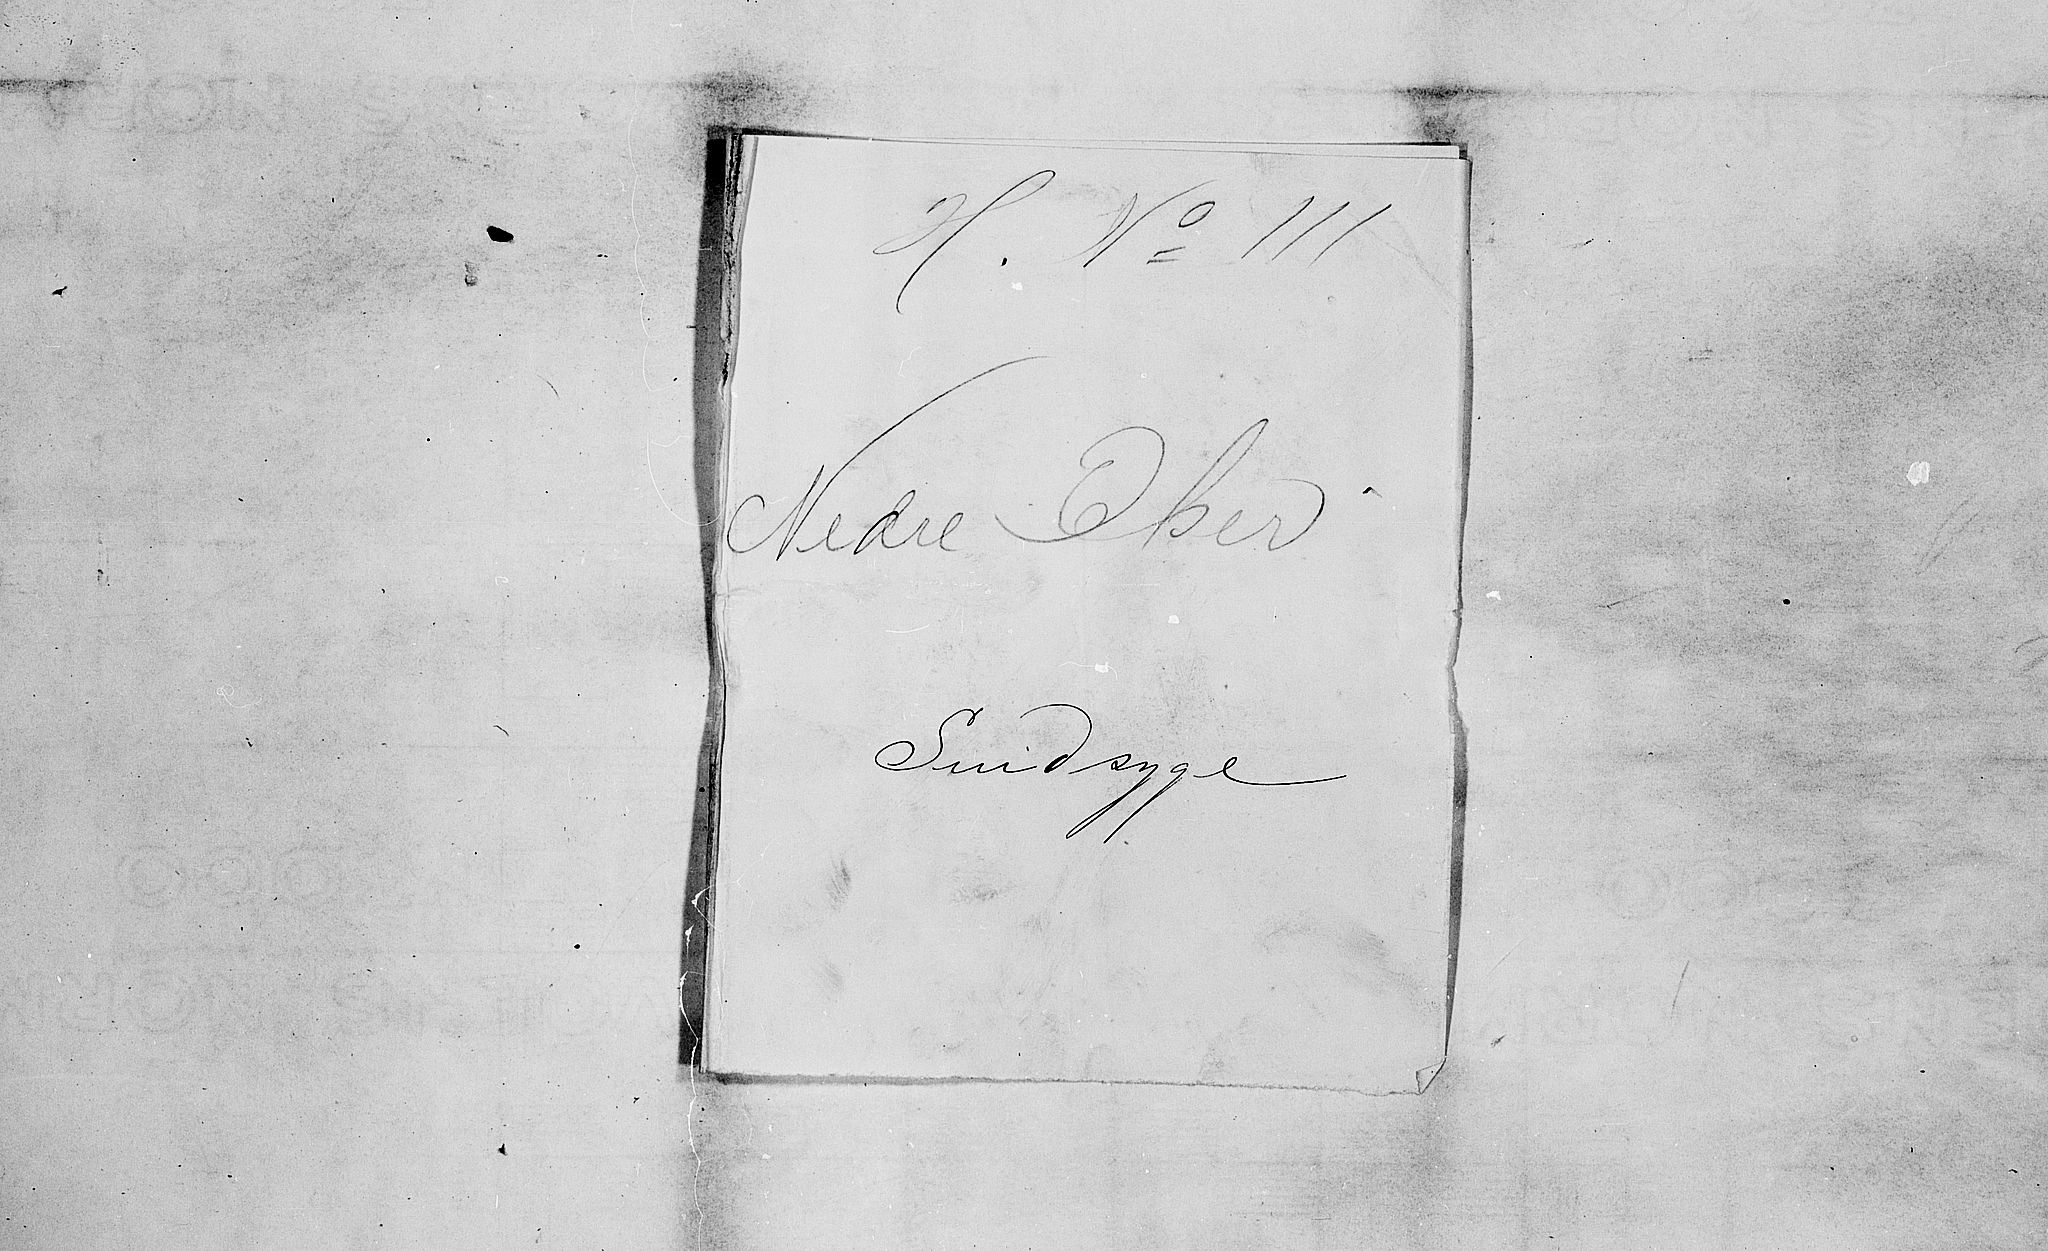 H. Nº 111
Nedre Eker
Sindsyge